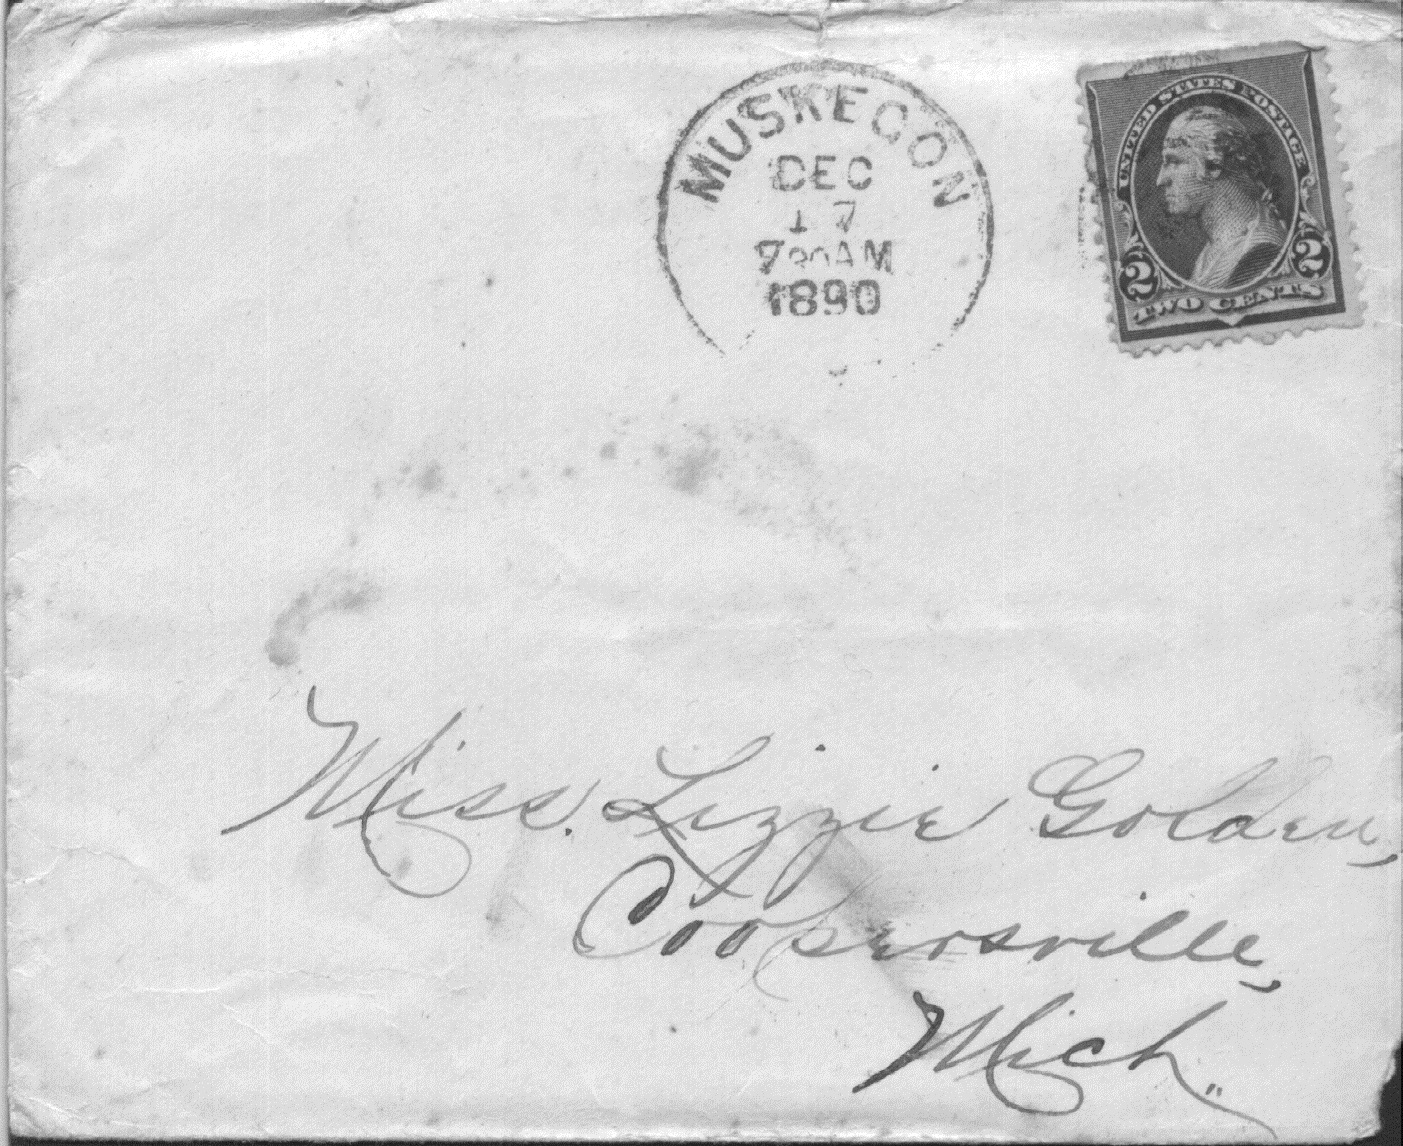 MUSKEGON
DEC
17
730AM
1890
UNITED STATES POSTAGE
2 2
TWO CENTS
Miss. Lizzie Golden,
Coopersville,
Mich.